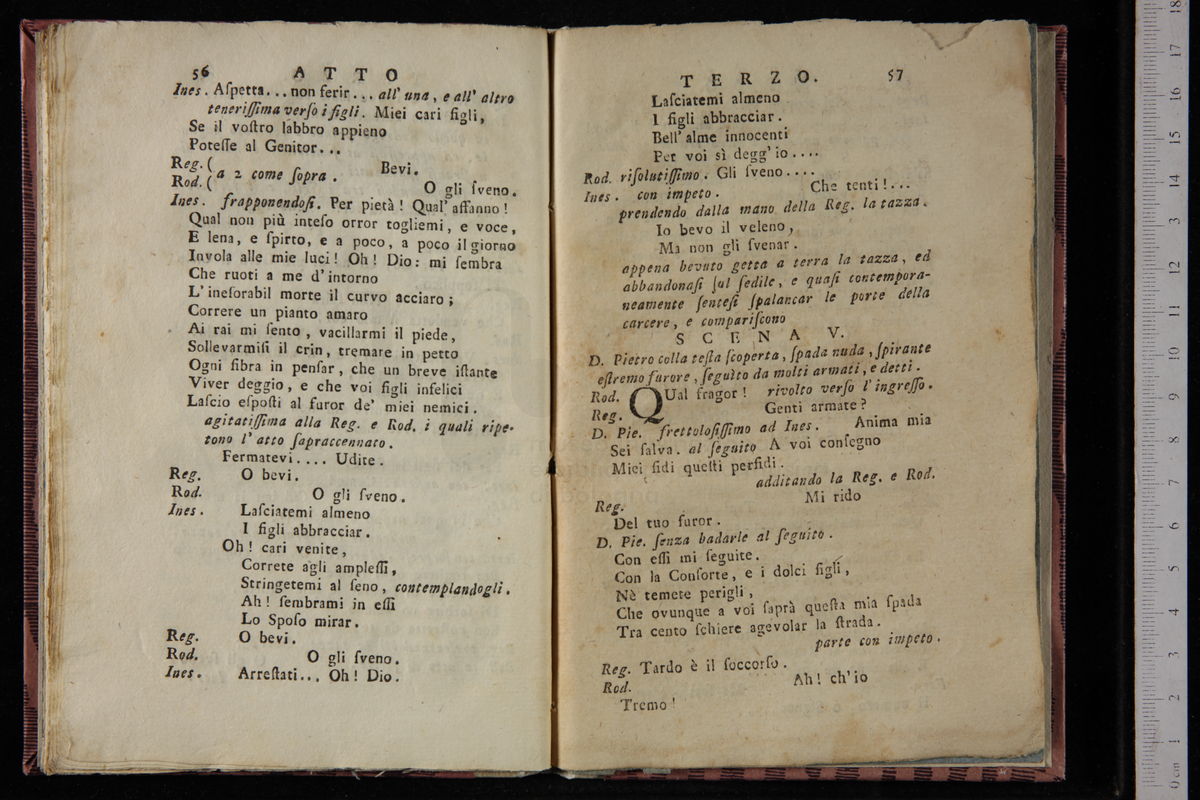 56 ATTO
Ines. Aſpetta... non ferir... all' una, e all' altro
teneriſſima verſo i figli. Miei cari figli,
Se il voſtro labbro appieno
Poteſſe al Genitor...
Reg. ( Bevi.
Rod. ( a 2 come ſopra.
O gli ſveno.
Ines. frapponendoſi. Per pietà! Qual' affanno!
Qual non più inteſo orror togliemi, e voce,
E lena, e ſpirto, e a poco, a poco il giorno
Invola alle mie luci! Oh! Dio: mi ſembra
Che ruoti a me d' intorno
L' ineſorabil morte il curvo acciaro;
Correre un pianto amaro
Ai rai mi ſento, vacillarmi il piede,
Sollevarmiſi il crin, tremare in petto
Ogni fibra in penſar, che un breve iſtante
Viver deggio, e che voi figli infelici
Laſcio eſpoſti al furor de' miei nemici.
agitatiſſima alla Reg. e Rod. i quali ripe-
tono l' atto ſapraccennato.
Fermatevi.... Udite.
Reg. O bevi.
Rod. O gli ſveno.
Ines. Laſciatemi almeno
I figli abbracciar.
Oh! cari venite,
Correte agli ampleſſi,
Stringetemi al ſeno, contemplandogli.
Ah! ſembrami in eſſi
Lo Spoſo mirar.
Reg. O bevi.
Rod. O gli ſveno.
Ines. Arreſtati... Oh! Dio.
TERZO. 57
Laſciatemi almeno
I figli abbracciar.
Bell' alme innocenti
Per voi sì degg' io....
Rod. riſolutiſſimo. Gli ſveno....
Ines. con impeto. Che tenti!...
prendendo dalla mano della Reg. la tazza.
Io bevo il veleno,
Ma non gli ſvenar.
appena bevuto getta a terra la tazza, ed
abbandonaſi ſul ſedile, e quaſi contempora-
neamente ſenteſi ſpalancar le porte della
carcere, e compariſcono
SCENA V.
D. Pietro colla teſta ſcoperta, ſpada nuda, ſpirante
eſtremo furore, ſeguito da molti armati, e detti.
Rod. QUal fragor! rivolto verſo l' ingreſſo.
Reg. Genti armate?
D. Pie. frettoloſiſſimo ad Ines. Anima mia
Sei ſalva. al ſeguito A voi conſegno
Miei fidi queſti perfidi.
additando la Reg. e Rod.
Reg. Mi rido
Del tuo furor.
D. Pie. ſenza badarle al ſeguito.
Con eſſi mi ſeguite.
Con la Conſorte, e i dolci figli,
Nè temete perigli,
Che ovunque a voi ſaprà queſta mia ſpada
Tra cento ſchiere agevolar la ſtrada.
parte con impeto.
Reg. Tardo è il ſoccorſo.
Rod. Ah! ch'io
Tremo!
0 cm 1 2 3 4 5 6 7 8 9 10 11 12 13 14 15 16 17 18